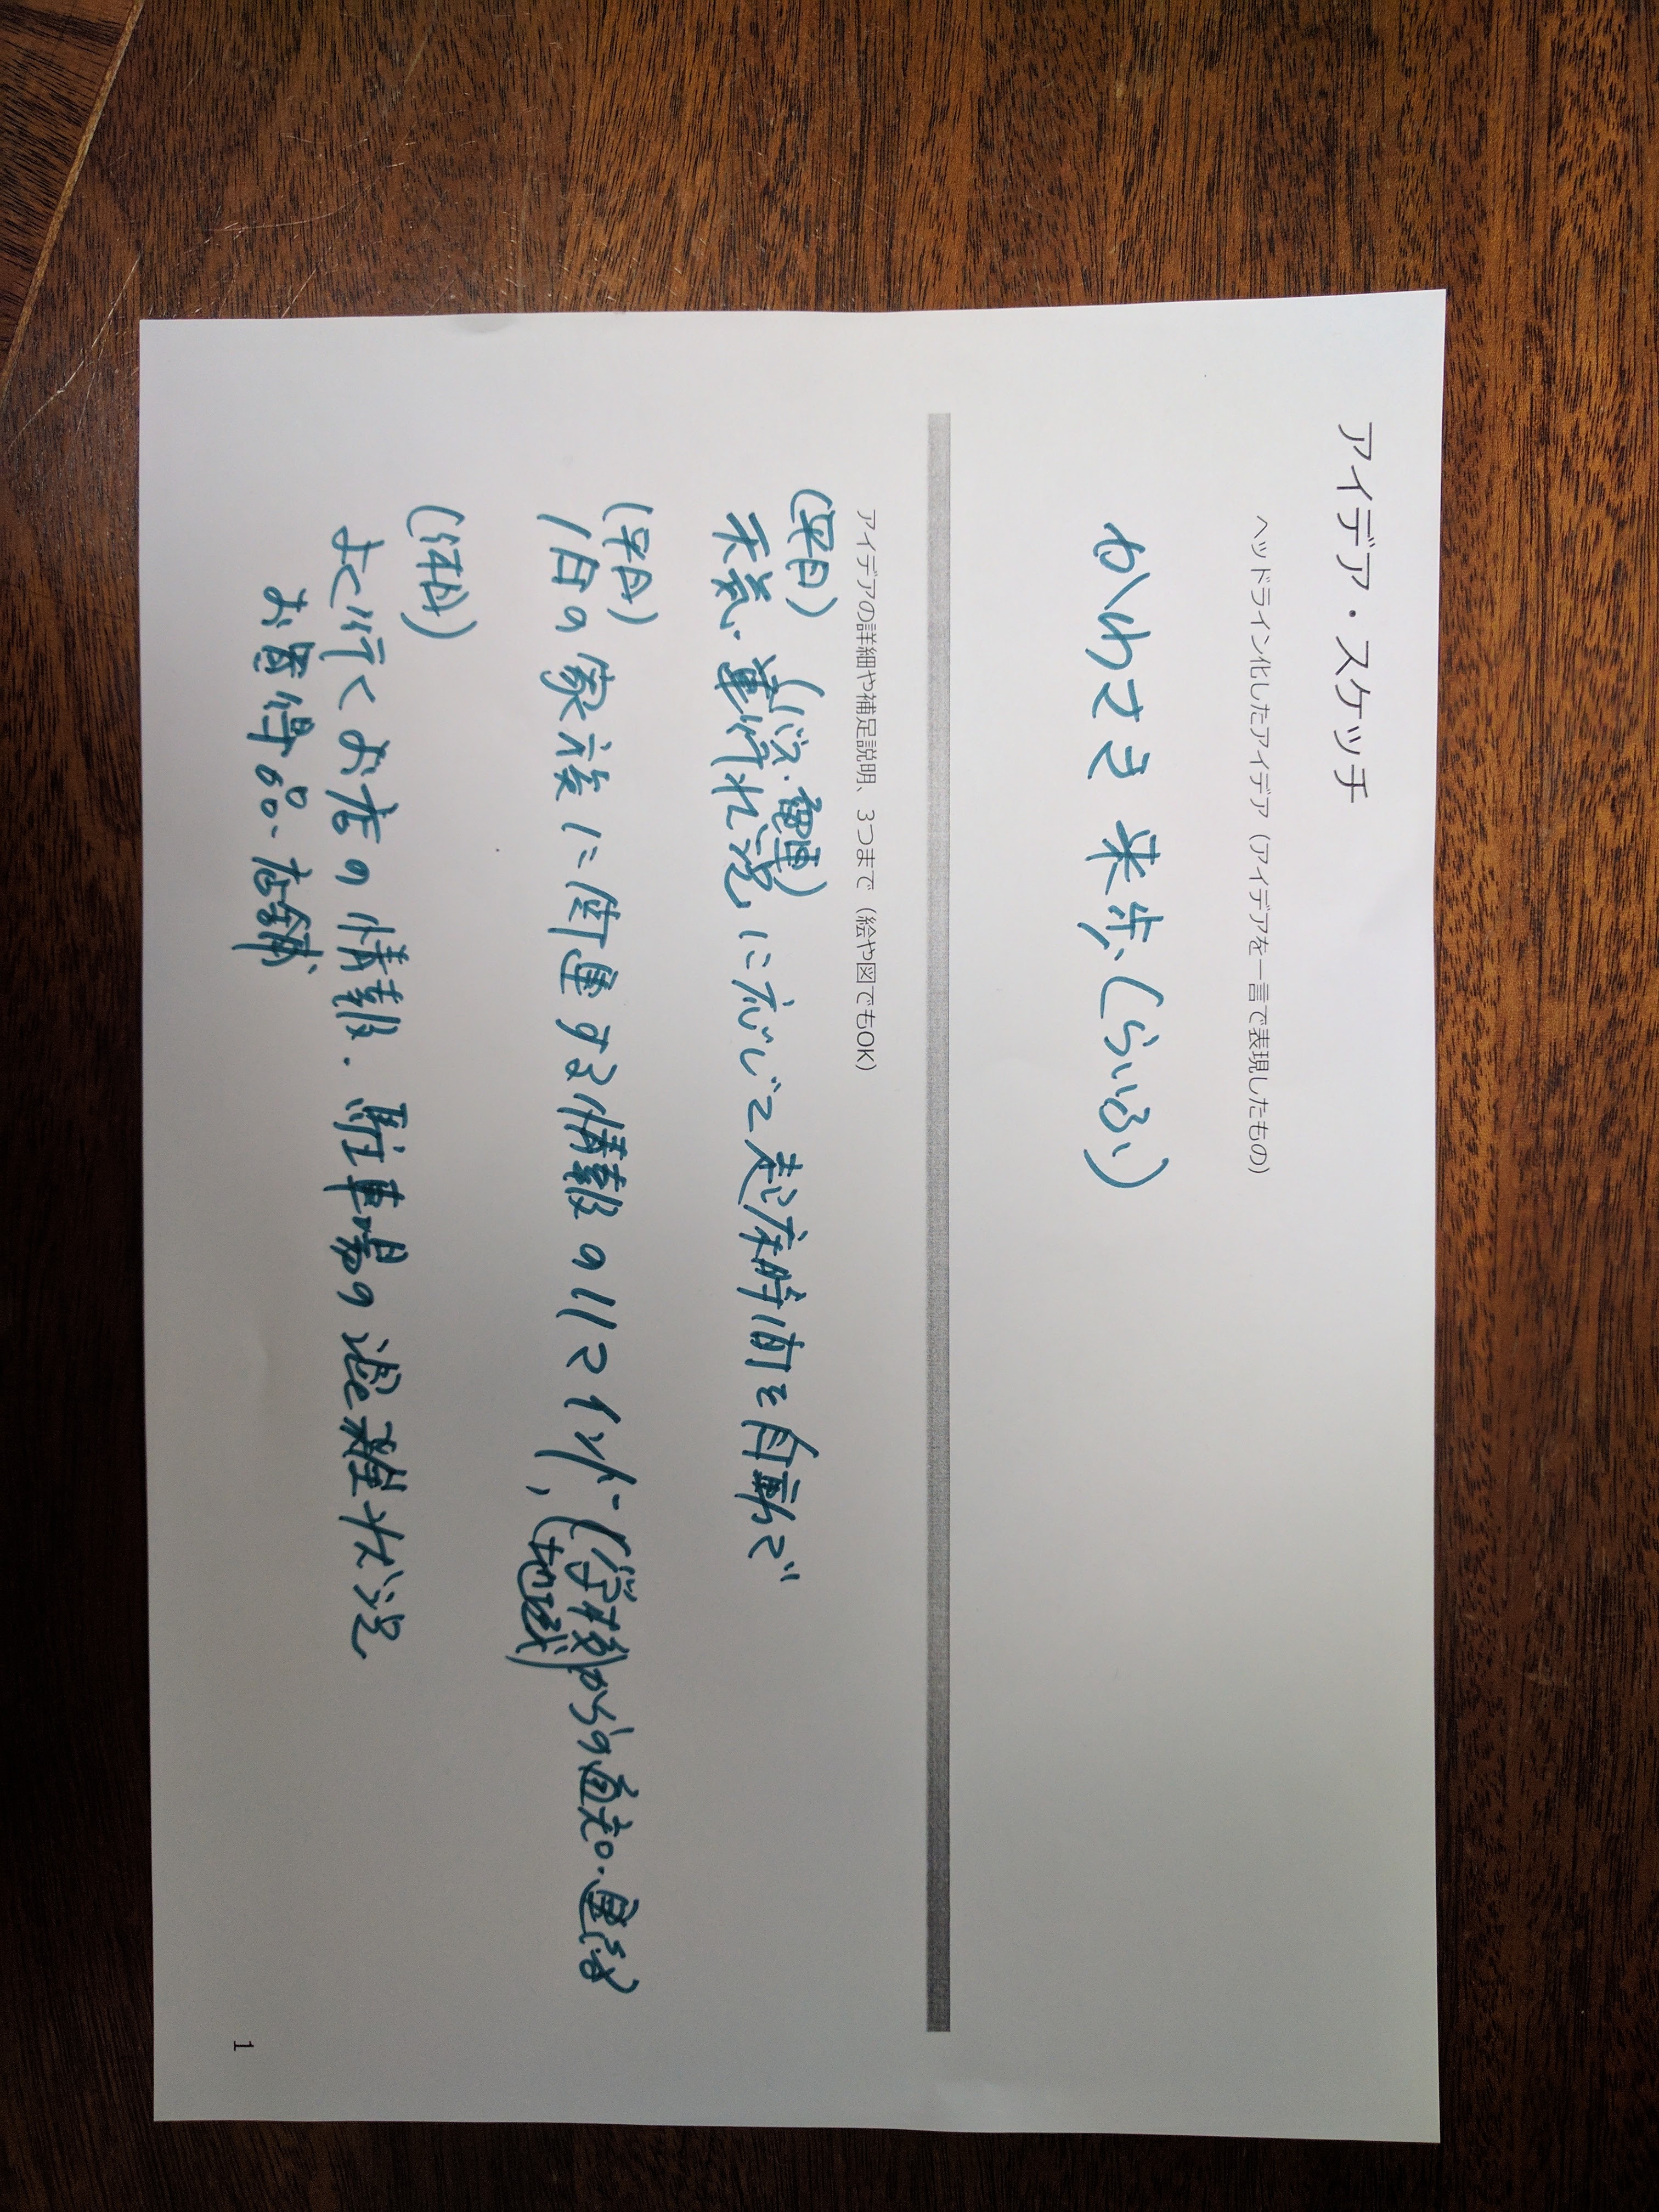 アイデア・スケッチ
ヘッドライン化したアイデア（アイデアを一言で表現したもの）
かわさき 来歩（らいふ）
アイデアの詳細や補足説明、3つまで（絵や図でもOK）
（平日）（バス・電車）
天気、運行状況に応じて起床時間を自動で
（平日）
1日の家族に関連する情報のリマインド、（学校からの通知・連絡）
（地域）
（休日）
よく行くお店の情報、駐車場の混雑状況
お買得品、店舗
1